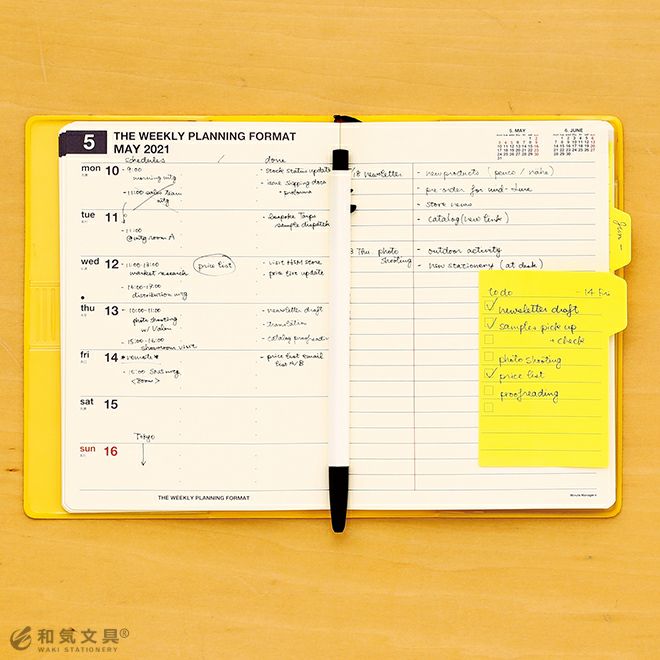 5
THE WEEKLY PLANNING FORMAT
MAY 2021
schedules / done
mon 10
9:00
morning mtg
11:00 sales team
mtg
- stock status update
- issue shipping docs
+ proforma
tue 11
11:00
@mtg room A
sample dispatch
wed 12
market research
price list
16:00-17:00
distribution mtg
- visit H&M store
- price list update
thu 13
10:00-11:00
photo shooting
w/
15:00-16:00
showroom visit
- newsletter draft
- translation
- catalog proofreading
fri 14
*remote*
<zoom>
- price list email
list A/B
sat 15
sun 16
Tokyo
THE WEEKLY PLANNING FORMAT
5. MAY
6. JUNE
18 newsletter
- new products (penco / nahe)
- pre-order for mid-June
- store news
- catalog (new link)
Thu. photo
shooting
- outdoor activity
- new stationery (at desk)
to do - 14 Fri
newsletter draft
samples pick up
+ check
photo shooting
price list
proofreading
和気文具®
WAKI STATIONERY